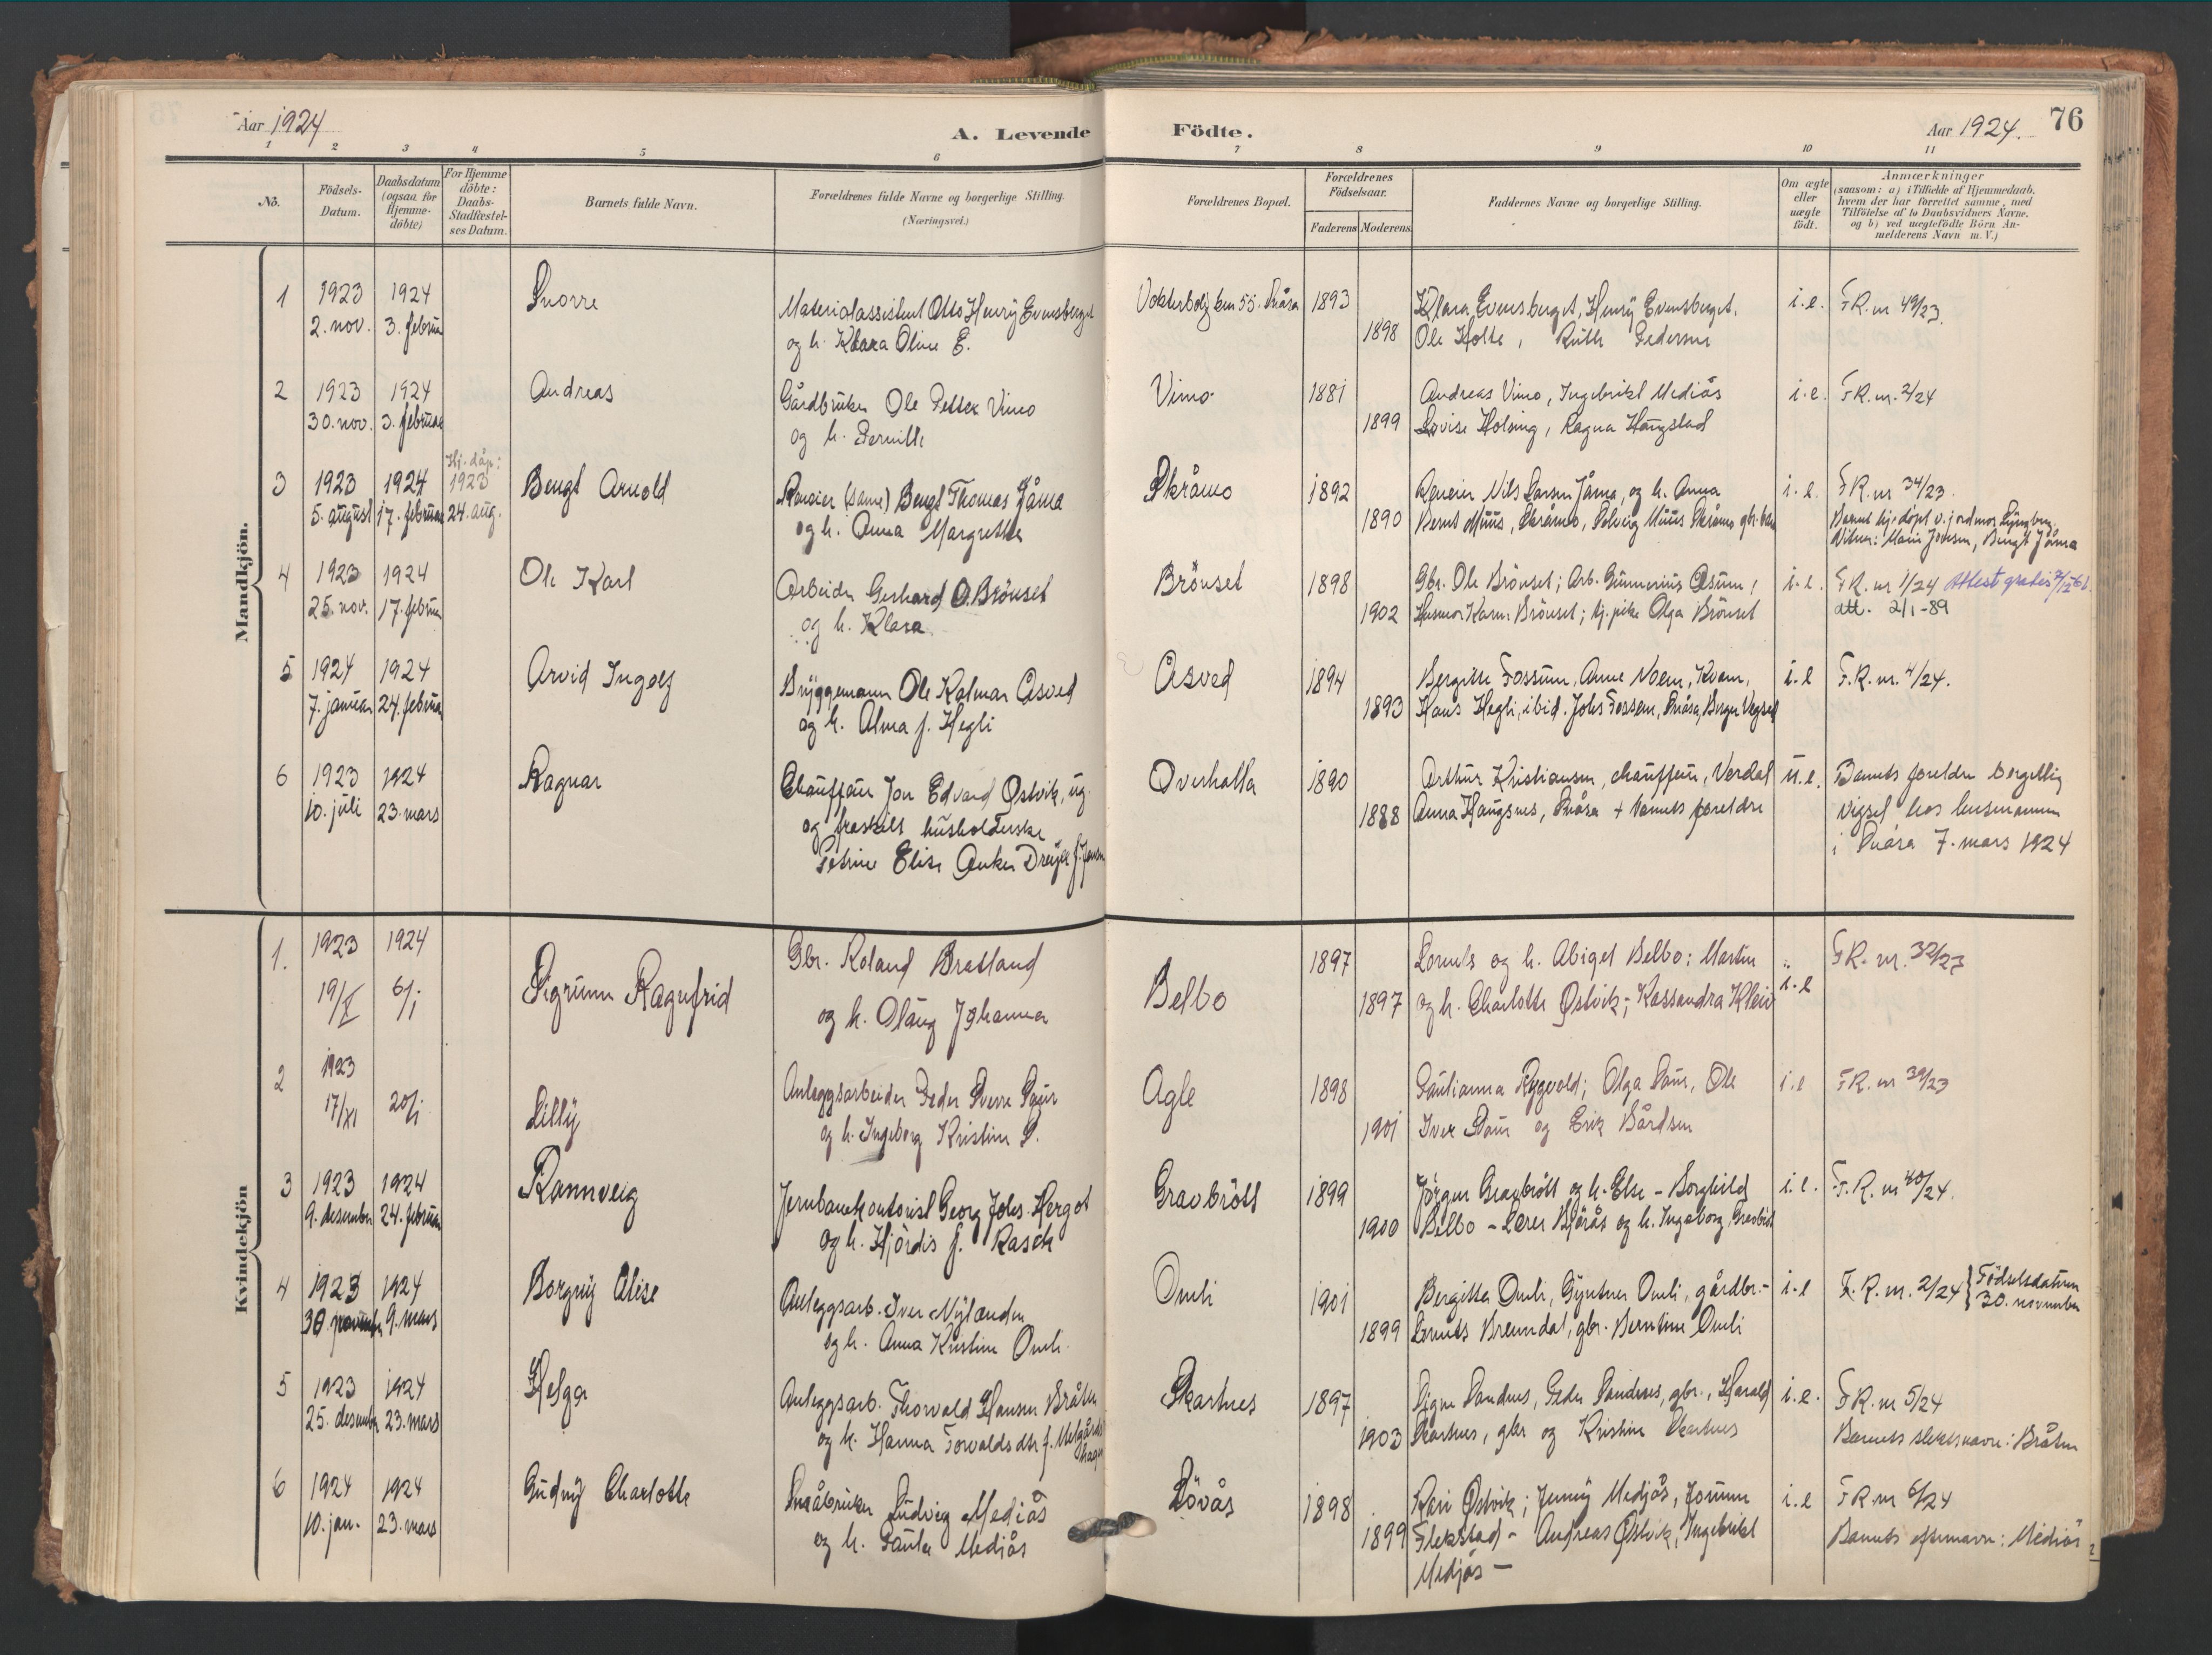 Aar 1924
A. Levende Födte.
Aar 1924.
76
1 2 3 4 5 6 7 8 9 10 11
No.
Födsels-Datum.
Daabsdatum (ogsaa for Hjemme-döbte)
For Hjemme döbte: Daabs-Stadfæstel-ses Datum.
Barnets fulde Navn.
Forældrenes fulde Navne og borgerlige Stilling. (Næringsvei.)
Forældrenes Bopæl.
Forældrenes Födselsaar.
Faderens Moderens
Faddernes Navne og borgerlige Stilling.
Om ægte eller uægte födt.
Anmærkninger
(saasom: a) i Tilfælde af Hjemmedaab,
hvem der har forrettet samme, med
Tilföielse af to Daabsvidners Navne.
og b) ved uægtefödte Börn An-
melderens Navn m. V.)
Mandkjön.
1 1923 1924 Snorre Materialassistent Otto Henry Evensberget Vokterbolig km 55. Snåsa 1893 Klara Evensberget, Henry Evensberget, i.e. F.R. nr 49/23.
2. nov. 3. februar og h. Klara Oline E. 1898 Ole Holte, Ruth Pedersen
2 1923 1924 Andreas Gårdbruker Ole Petter Vimo Vimo 1881 Andreas Vimo, Ingebrikt Mediås i.e. F.R. nr. 2/24
30. nov. 3. februar og h. Pernille 1899 Lovise Holsing, Ragna Haugstad
Hj. dåp:
3 1923 1924 1923 Bengt Arnold (Same) Bengt Thomas Jåma Skråmo 1892 Nils Larsen Jåma, og h. Anna i.e. F.R. nr 34/23.
5. august 17. februar 24. aug. og h. Anna Margrethe 1890 Bernt Muus, Skråmo, Solveig Muus Skråmo Barnet hj. döpt v. jordmor
Vitner: Jåma
4 1923 1924 Ole Karl Arbeider Gerhard O. Brönset Brönset 1898 Gbr. Ole Brönset; Arb. Gunnerius i.e. F.R. nr 1/24 Attest gratis
25. nov. 17. februar og h. Klara 1902 Karen Brönset; tj. pike Olga Brönset att. 2/1-89
5 1924 1924 Arvid Ingolf Bryggemann Ole Kalmar Åsved Åsved 1894 Bergitte Fossum, Anne Noem, Kvam, i.e F.R. nr. 4/24.
7. januar 24. februar og h. Alma f. Hegli 1893 Hans Hegli, ibid. Johs Fossem, Snåsa,
6 1923 1924 Ragnar Chauffeur Jon Edvard Östvik, ug. Overhalla 1890 Arthur Kristiansen, chauffeur, Verdal u.e. Barnets foreldre borgerlig
10. juli 23. mars og fraskilt husholderske 1888 Anna Haugsnes, Snåsa + barnets foreldre vigsel hos lensmannen
Petrine Elise Anker Dreyer f. Jensen i Snåsa 7. mars 1924
Kvindekjön
1. 1923 1924 Sigrunn Ragnfrid Gbr. Roland Bratland Belbo 1897 Lornts og h. Abigel Belbo; Morten i.e F.R. nr. 32/23
19/X 6/I og h. Olaug Johanna 1897 og h. Charlotte Östvik; Kassandra Kleiv
2 1923 Lilly Anleggsarbeider Peder Sverre Agle 1898 Paulianna Rygvold; Olga Ole i.e F.R. nr 39/23
17/XI 20/I og h. Ingeborg Kristine 1901 Iver og Erik Bårdsen
3 1923 1924 Rannveig Jernbanekontorist Georg Johs. Hergot Gravbrött 1899 Jörgen Gravbrött og h. Else - Borghild i.e. F.R. nr 40/24.
9. desember 24. februar og h. Hjördis f. Rasch 1900 Belbo - Lærer Bjørås og h. Ingeborg, Gravbrött
4 1923 1924 Borgny Alise Anleggsarb. Iver Nylander Omli 1901 Bergitta Omli, Omli, gårdbr. - i.e F.R. nr. 2/24 } Födselsdatum
30 november 9. mars og h. Anna Kristine Omli. 1899 Lornts Bremdal, gbr. Berntine Omli 30. november
5 1923 1924 Helga Anleggsarb. Thorvald Hansen Bråten Skartnes 1897 Signe Sandnes, Peder Sandnes, gbr., Harald i.e. F.R. nr 5/24
25. desember 23. mars og h. Hanna Torvaldsdtr f. 1903 Skartnes, gbr og Kristine Skartnes Barnets slektsnavn: Bråten
6 1924 1924 Gudny Charlotte Småbruker Ludvig Mediås Lövås 1898 Kari Östvik; Jenny Medjås, Jorunn i.e F.R. nr 6/24
10. jan. 23. mars og h. Paula Mediås 1899 Flekstad - Andreas Östvik, Ingebrikt Barnets efternavn: Mediås
Medjås -